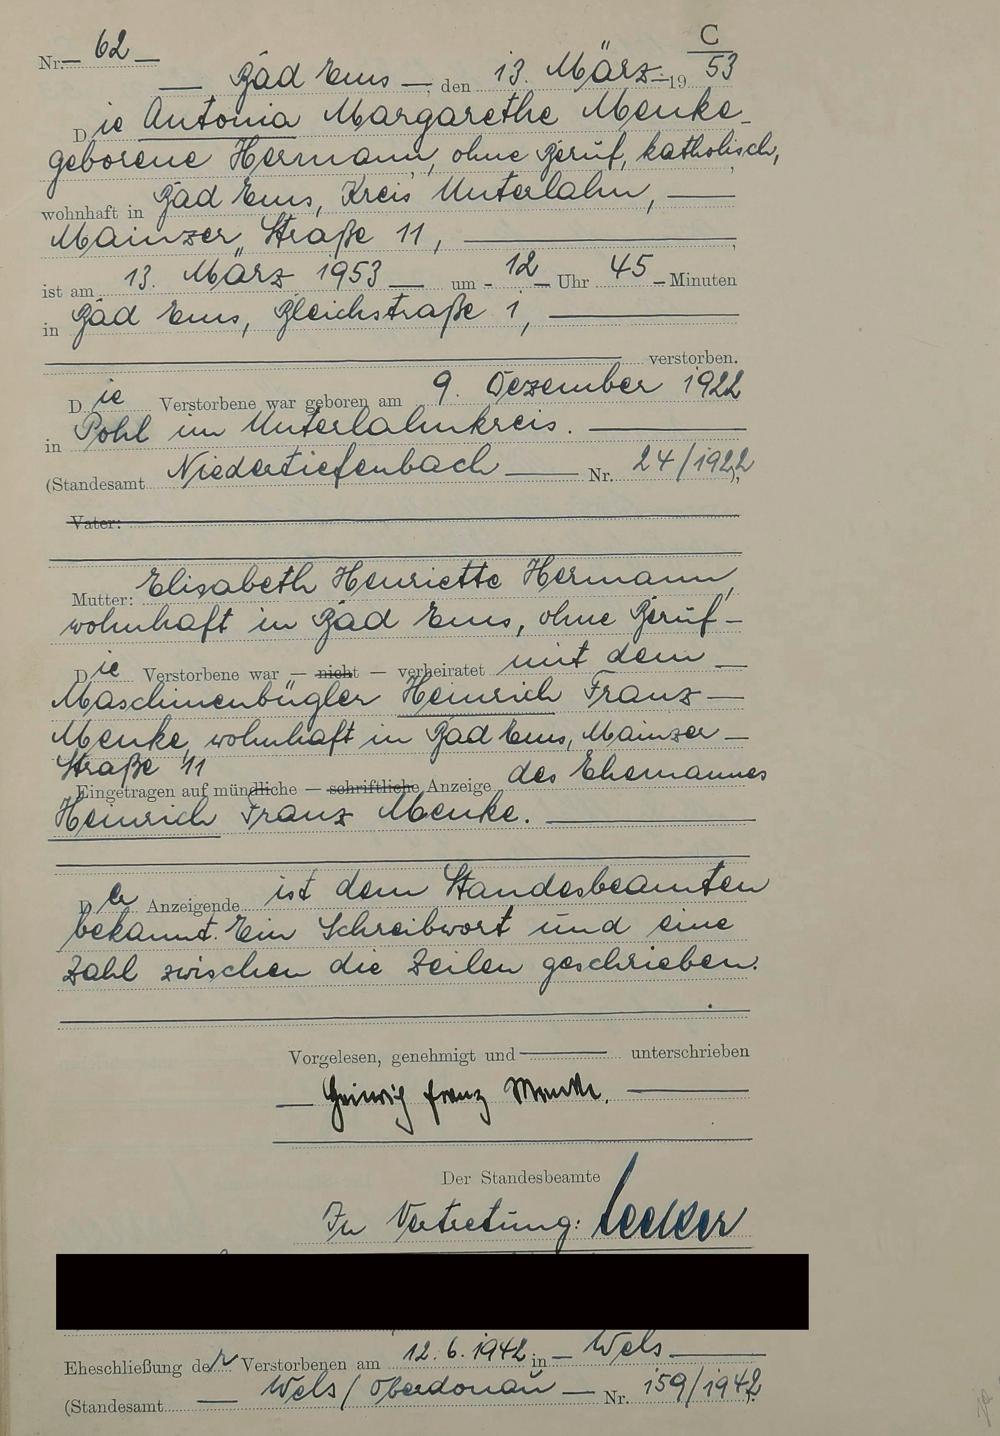 C
Nr. — 62 —
— Bad Ems —, den 13. März 19 53
Die Antonia Margarethe Menke
geborene Hermann, ohne Beruf, katholisch,
wohnhaft in Bad Ems, Kreis Unterlahn, —
Mainzer Straße 11, —
ist am 13. März 1953 — um - 12 — Uhr 45 — Minuten
in Bad Ems, Bleichstraße 1, —
verstorben.
Die Verstorbene war geboren am 9. Dezember 1922
in Pohl im Unterlahnkreis. —
(Standesamt Niedertiefenbach — Nr. 24/1922),
Vater:
Mutter: Elisabeth Henriette Hermann,
wohnhaft in Bad Ems, ohne Beruf —
Die Verstorbene war — nicht — verheiratet mit dem —
Maschinenbügler Heinrich Franz —
Menke, wohnhaft in Bad Ems, Mainzer —
Straße 11
Eingetragen auf mündliche — schriftliche Anzeige des Ehemannes
Heinrich Franz Menke. —
Der Anzeigende ist dem Standesbeamten
bekannt. Ein Schreibwort und eine
Zahl zwischen die Zeilen geschrieben.
Vorgelesen, genehmigt und — unterschrieben
— Heinrich Franz Menke. —
Der Standesbeamte
In Vertretung:
Eheschließung der Verstorbenen am 12.6.1942 in — Wels —
(Standesamt — Wels / Oberdonau — Nr. 159/1942).